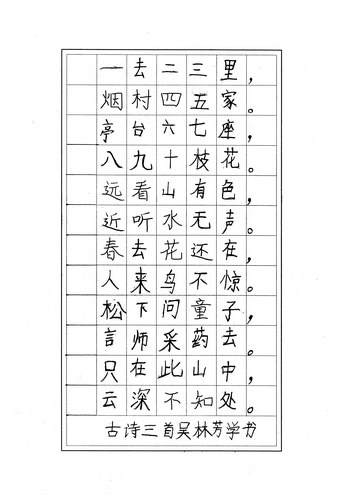 一去二三里，
烟村四五家。
亭台六七座，
八九十枝花。
远看山有色，
近听水无声。
春去花还在，
人来鸟不惊。
松下问童子，
言师采药去。
只在此山中，
云深不知处。
古诗三首吴林芳学书